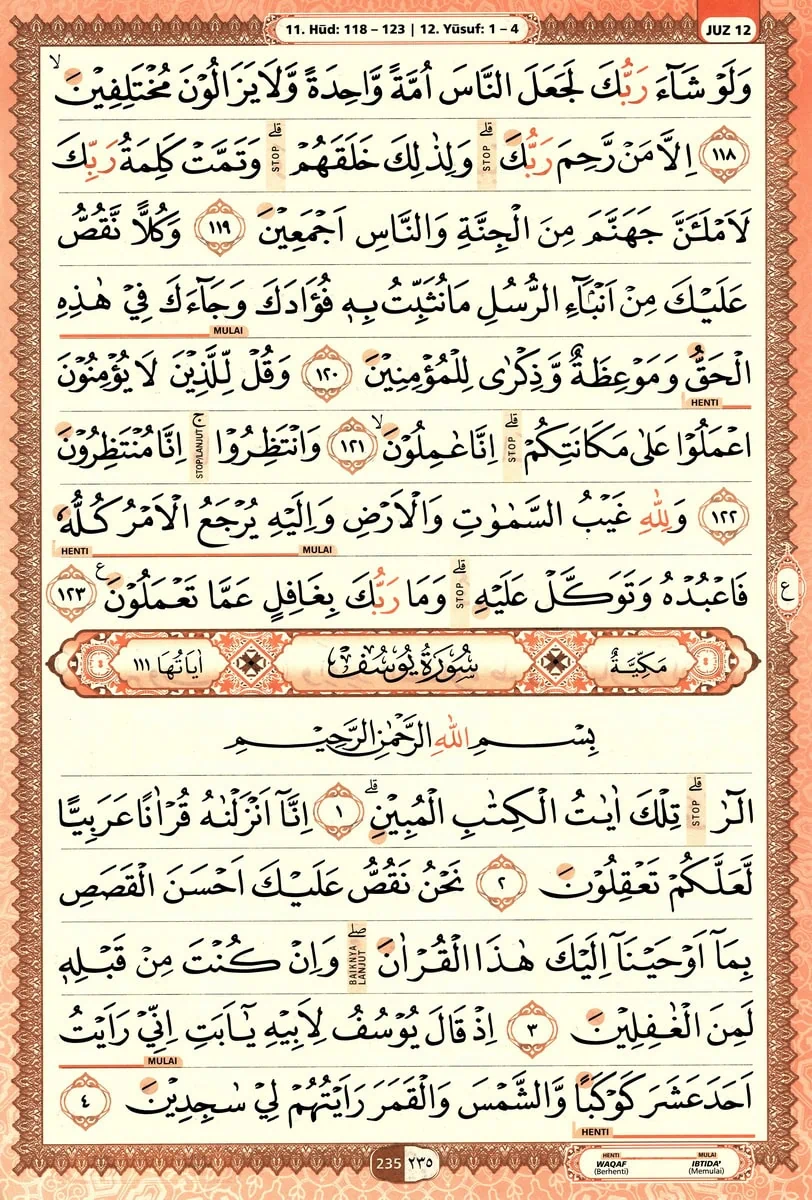 11. Hūd: 118 – 123 | 12. Yūsuf: 1 – 4
JUZ 12
وَلَوْ شَاۤءَ رَبُّكَ لَجَعَلَ النَّاسَ اُمَّةً وَّاحِدَةً وَّلَا يَزَالُوْنَ مُخْتَلِفِيْنَ ۙ
١١٨ اِلَّا مَنْ رَّحِمَ رَبُّكَ ۗ STOP وَلِذٰلِكَ خَلَقَهُمْ ۗ STOP وَتَمَّتْ كَلِمَةُ رَبِّكَ
لَاَمْلَـَٔنَّ جَهَنَّمَ مِنَ الْجِنَّةِ وَالنَّاسِ اَجْمَعِيْنَ ١١٩ وَكُلًّا نَّقُصُّ
عَلَيْكَ مِنْ اَنْۢبَاۤءِ الرُّسُلِ مَا نُثَبِّتُ بِهٖ فُؤَادَكَ وَجَاۤءَكَ فِيْ هٰذِهِ
MULAI
الْحَقُّ وَمَوْعِظَةٌ وَّذِكْرٰى لِلْمُؤْمِنِيْنَ ١٢٠ وَقُلْ لِّلَّذِيْنَ لَا يُؤْمِنُوْنَ
HENTI
اعْمَلُوْا عَلٰى مَكَانَتِكُمْ ۗ STOP اِنَّا عٰمِلُوْنَ ۙ ١٢١ وَانْتَظِرُوْا ۚ STOP/LANJUT اِنَّا مُنْتَظِرُوْنَ
١٢٢ وَلِلّٰهِ غَيْبُ السَّمٰوٰتِ وَالْاَرْضِ وَاِلَيْهِ يُرْجَعُ الْاَمْرُ كُلُّهٗ
MULAI HENTI
فَاعْبُدْهُ وَتَوَكَّلْ عَلَيْهِ ۗ STOP وَمَا رَبُّكَ بِغَافِلٍ عَمَّا تَعْمَلُوْنَ ع ١٢٣
ع
مَكِّيَّةٌ سُوْرَةُ يُوْسُفَ اٰيَاتُهَا ١١١
بِسْمِ اللّٰهِ الرَّحْمٰنِ الرَّحِيْمِ
الۤرٰ ۗ STOP تِلْكَ اٰيٰتُ الْكِتٰبِ الْمُبِيْنِ ۗ ١ اِنَّآ اَنْزَلْنٰهُ قُرْاٰنًا عَرَبِيًّا
لَّعَلَّكُمْ تَعْقِلُوْنَ ٢ نَحْنُ نَقُصُّ عَلَيْكَ اَحْسَنَ الْقَصَصِ
بِمَآ اَوْحَيْنَآ اِلَيْكَ هٰذَا الْقُرْاٰنَ ۖ BAIKNYA LANJUT وَاِنْ كُنْتَ مِنْ قَبْلِهٖ
لَمِنَ الْغٰفِلِيْنَ ٣ اِذْ قَالَ يُوْسُفُ لِاَبِيْهِ يٰٓاَبَتِ اِنِّيْ رَاَيْتُ
MULAI
اَحَدَ عَشَرَ كَوْكَبًا وَّالشَّمْسَ وَالْقَمَرَ رَاَيْتُهُمْ لِيْ سٰجِدِيْنَ ٤
HENTI
235 ٢٣٥
HENTI MULAI
WAQAF IBTIDA'
(Berhenti) (Memulai)